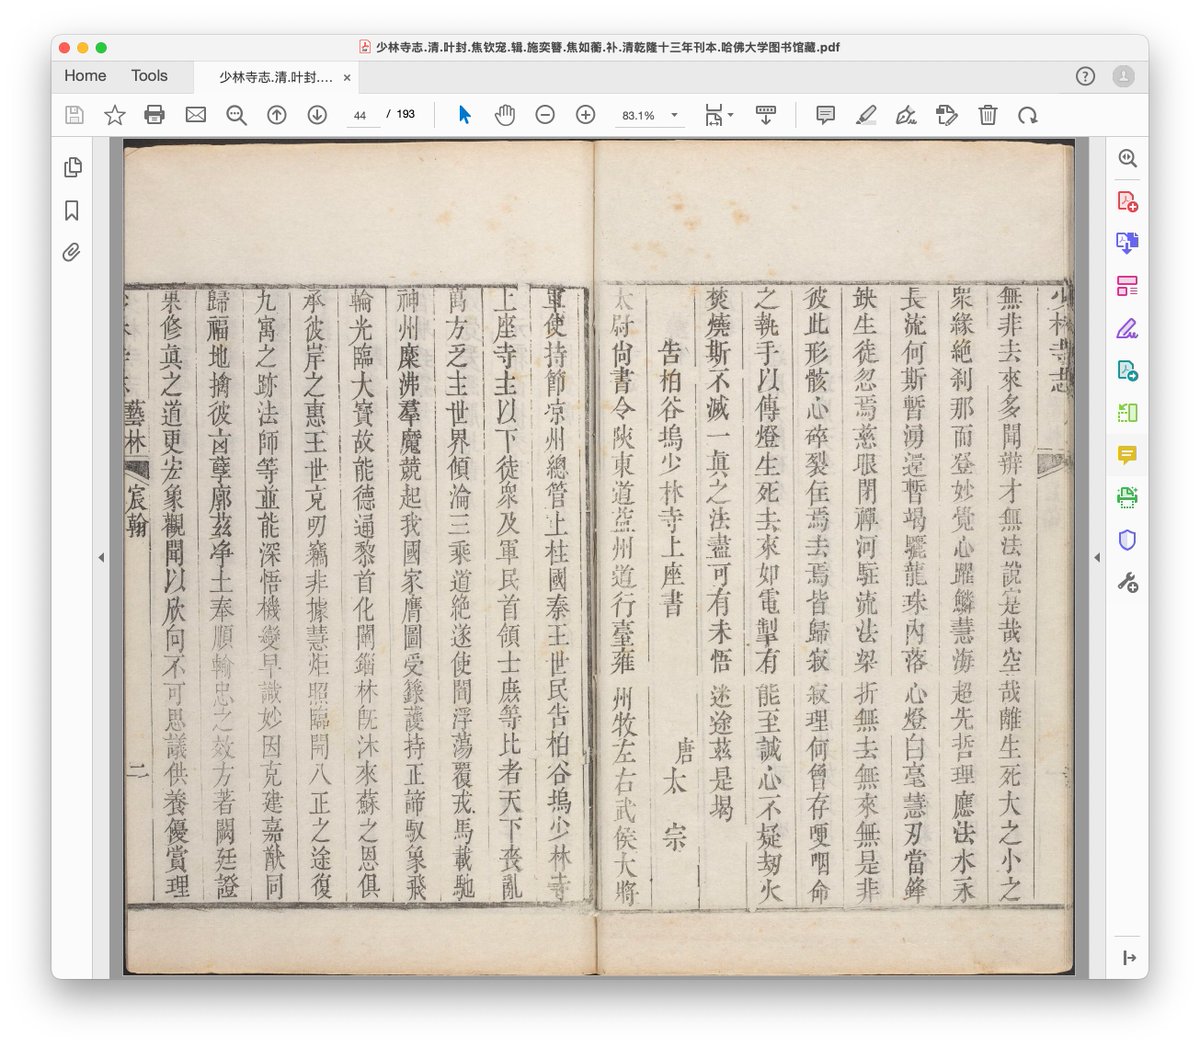 少林寺志.清.叶封.焦钦宠.辑.施奕簪.焦如蘅.补.清乾隆十三年刊本.哈佛大学图书馆藏.pdf
Home
Tools
少林寺志.清.叶封....
44 / 193
83.1%
少林寺志
無非去來多聞辨才無法說寔哉空哉離生死大之小之
衆緣絶刹那而登妙覺心躍鱗慧海超先哲理應法水永
長流何斯暫湧還暫竭驪龍珠內落心燈白毫慧刃當鋒
缺生徒忽焉慈眼閉禪河駐流法梁折無去無來無是非
彼此形骸心碎裂住焉去焉皆歸寂寂理何曾存哽咽命
之執手以傳燈生死去來如電掣有能至誠心不疑刼火
焚燒斯不滅一眞之法盡可有未悟迷途兹是堨
告柏谷塢少林寺上座書
唐太宗
太尉尙書令陝東道益州道行臺雍州牧左右武侯大將
軍使持節凉州總管上柱國秦王世民告柏谷塢少林寺
上座寺主以下徒衆及軍民首領士庶等比者天下喪亂
萬方乏主世界傾淪三乘道絶遂使閻浮蕩覆戎馬載馳
神州糜沸羣魔競起我國家膺圖受籙護持正諦馭象飛
輪光臨大寳故能德通黎首化闡緇林旣沐來蘇之恩俱
承彼岸之惠王世充叨竊非據慧炬照臨開八正之途復
九寓之跡法師等並能深悟機變早識妙因克建嘉猷同
歸福地擒彼凶孽廓兹净土奉順輸忠之效方著闕廷證
果修眞之道更宏象觀聞以欣向不可思議供養優賞理
藝林
宸翰
二